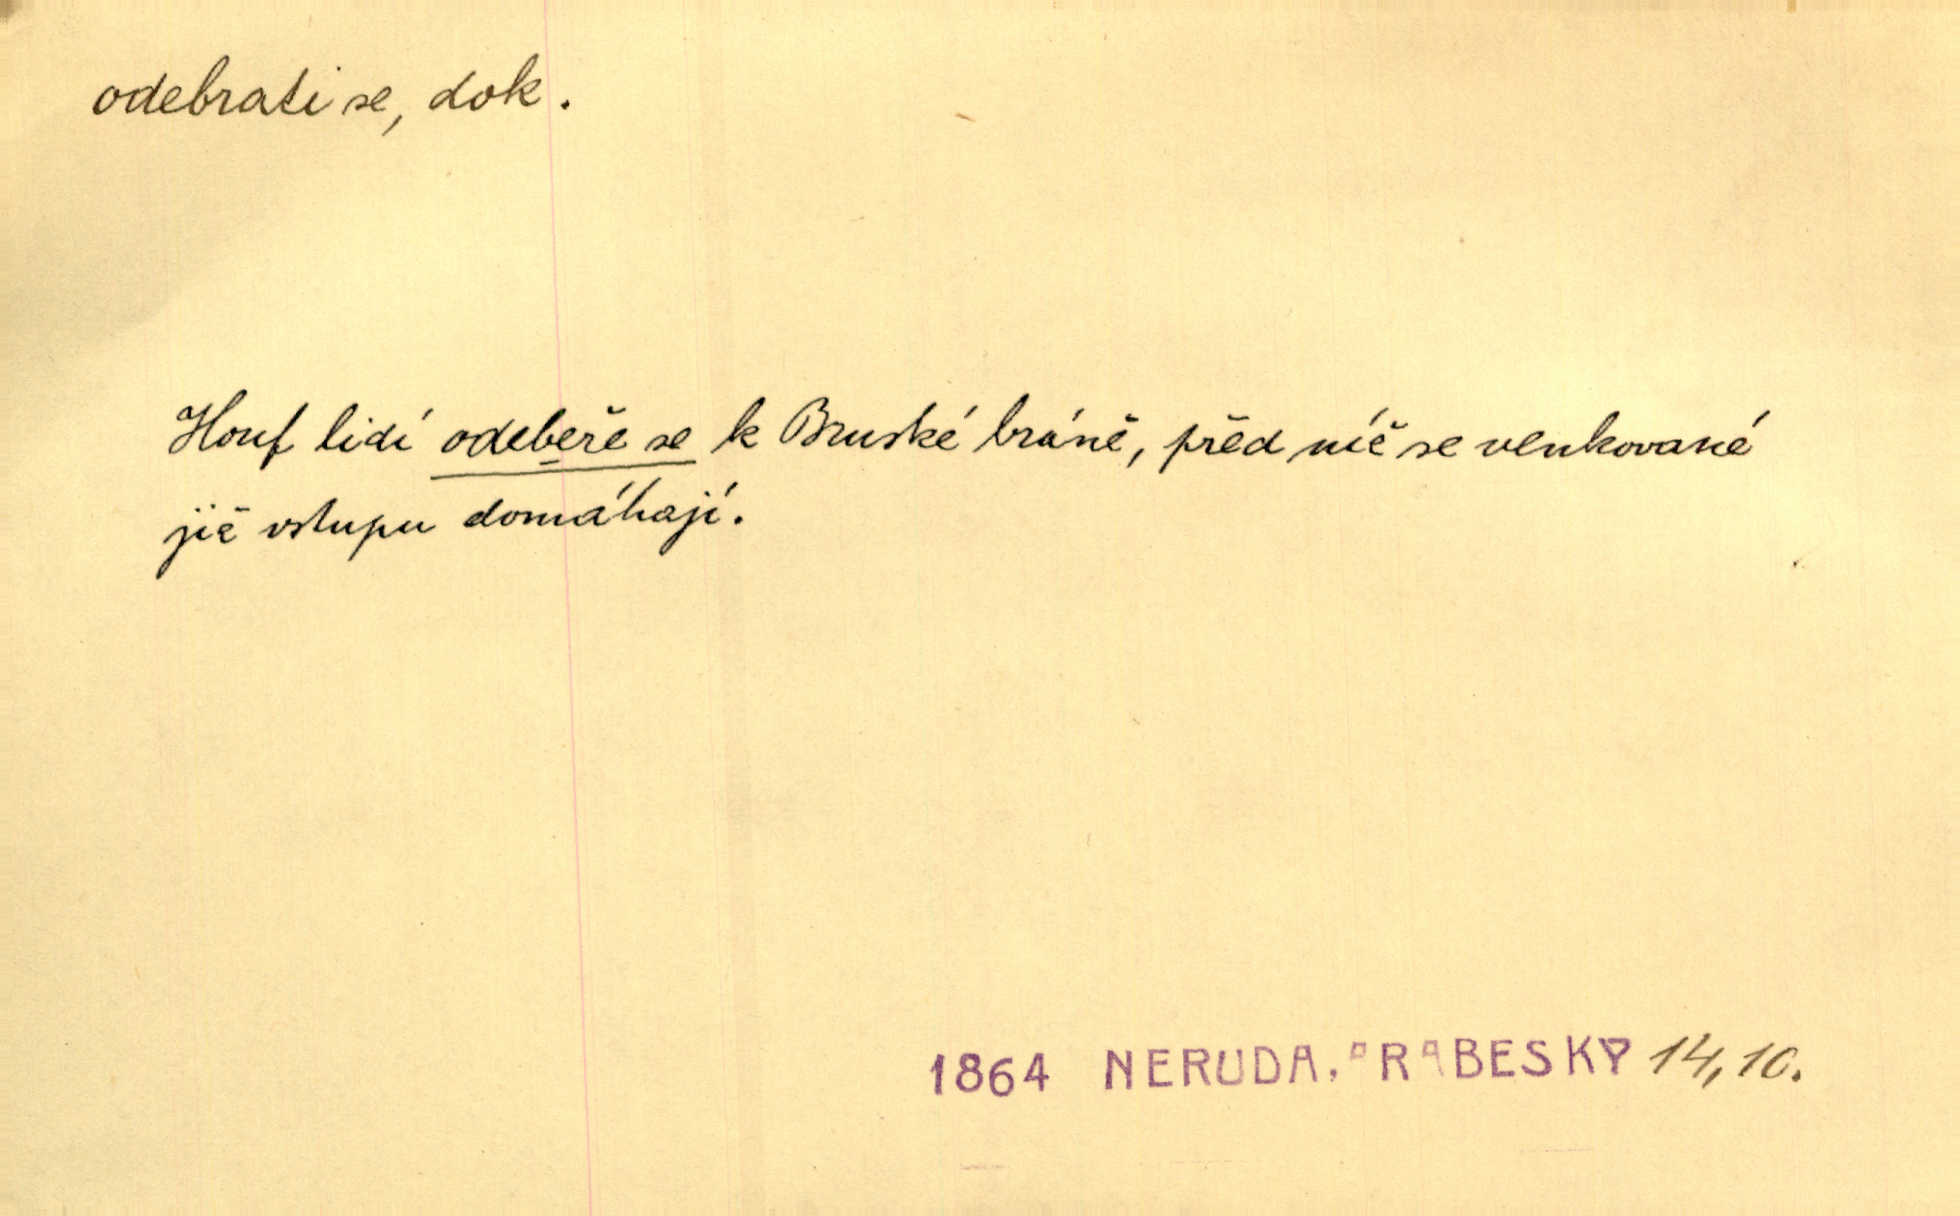 odebrati se, dok.
Houf lidí odebeře se k Bruské bráně, před níž se venkované
již vstupu domáhají.
1864 NERUDA, ARABESKY 14, 10.